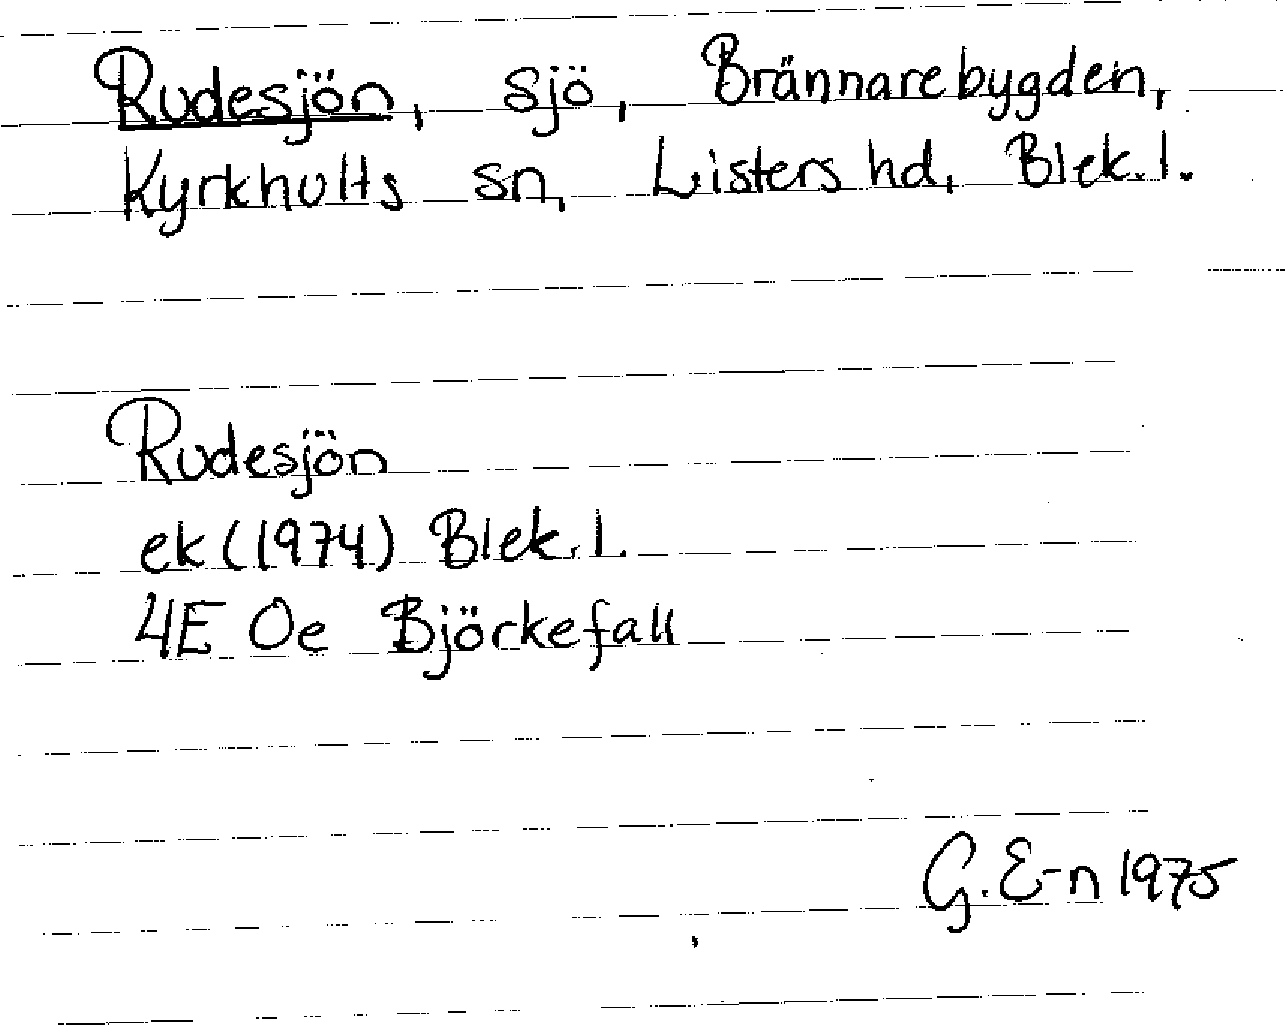 Rudesjön, sjö, Brännarebygden,
Kyrkhults sn, Listers hd, Blek. l.
Rudesjön
ek (1974) Blek. l.
4E 0e Björkefall
G. E-n 1975